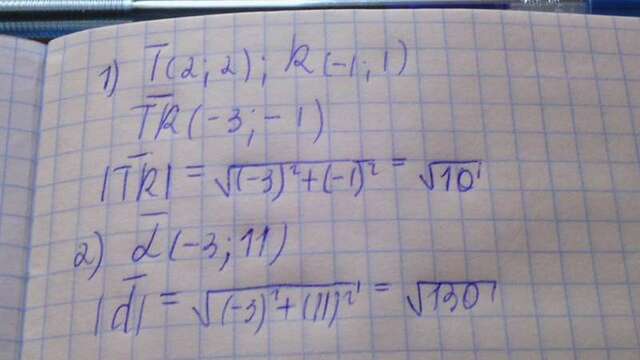 1) T(2; 2); R(-1; 1)
T̅R̅(-3; -1)
|T̅R̅| = √((-3)²+(-1)²) = √10
2) d̅(-3; 11)
|d̅| = √((-3)²+(11)²) = √130